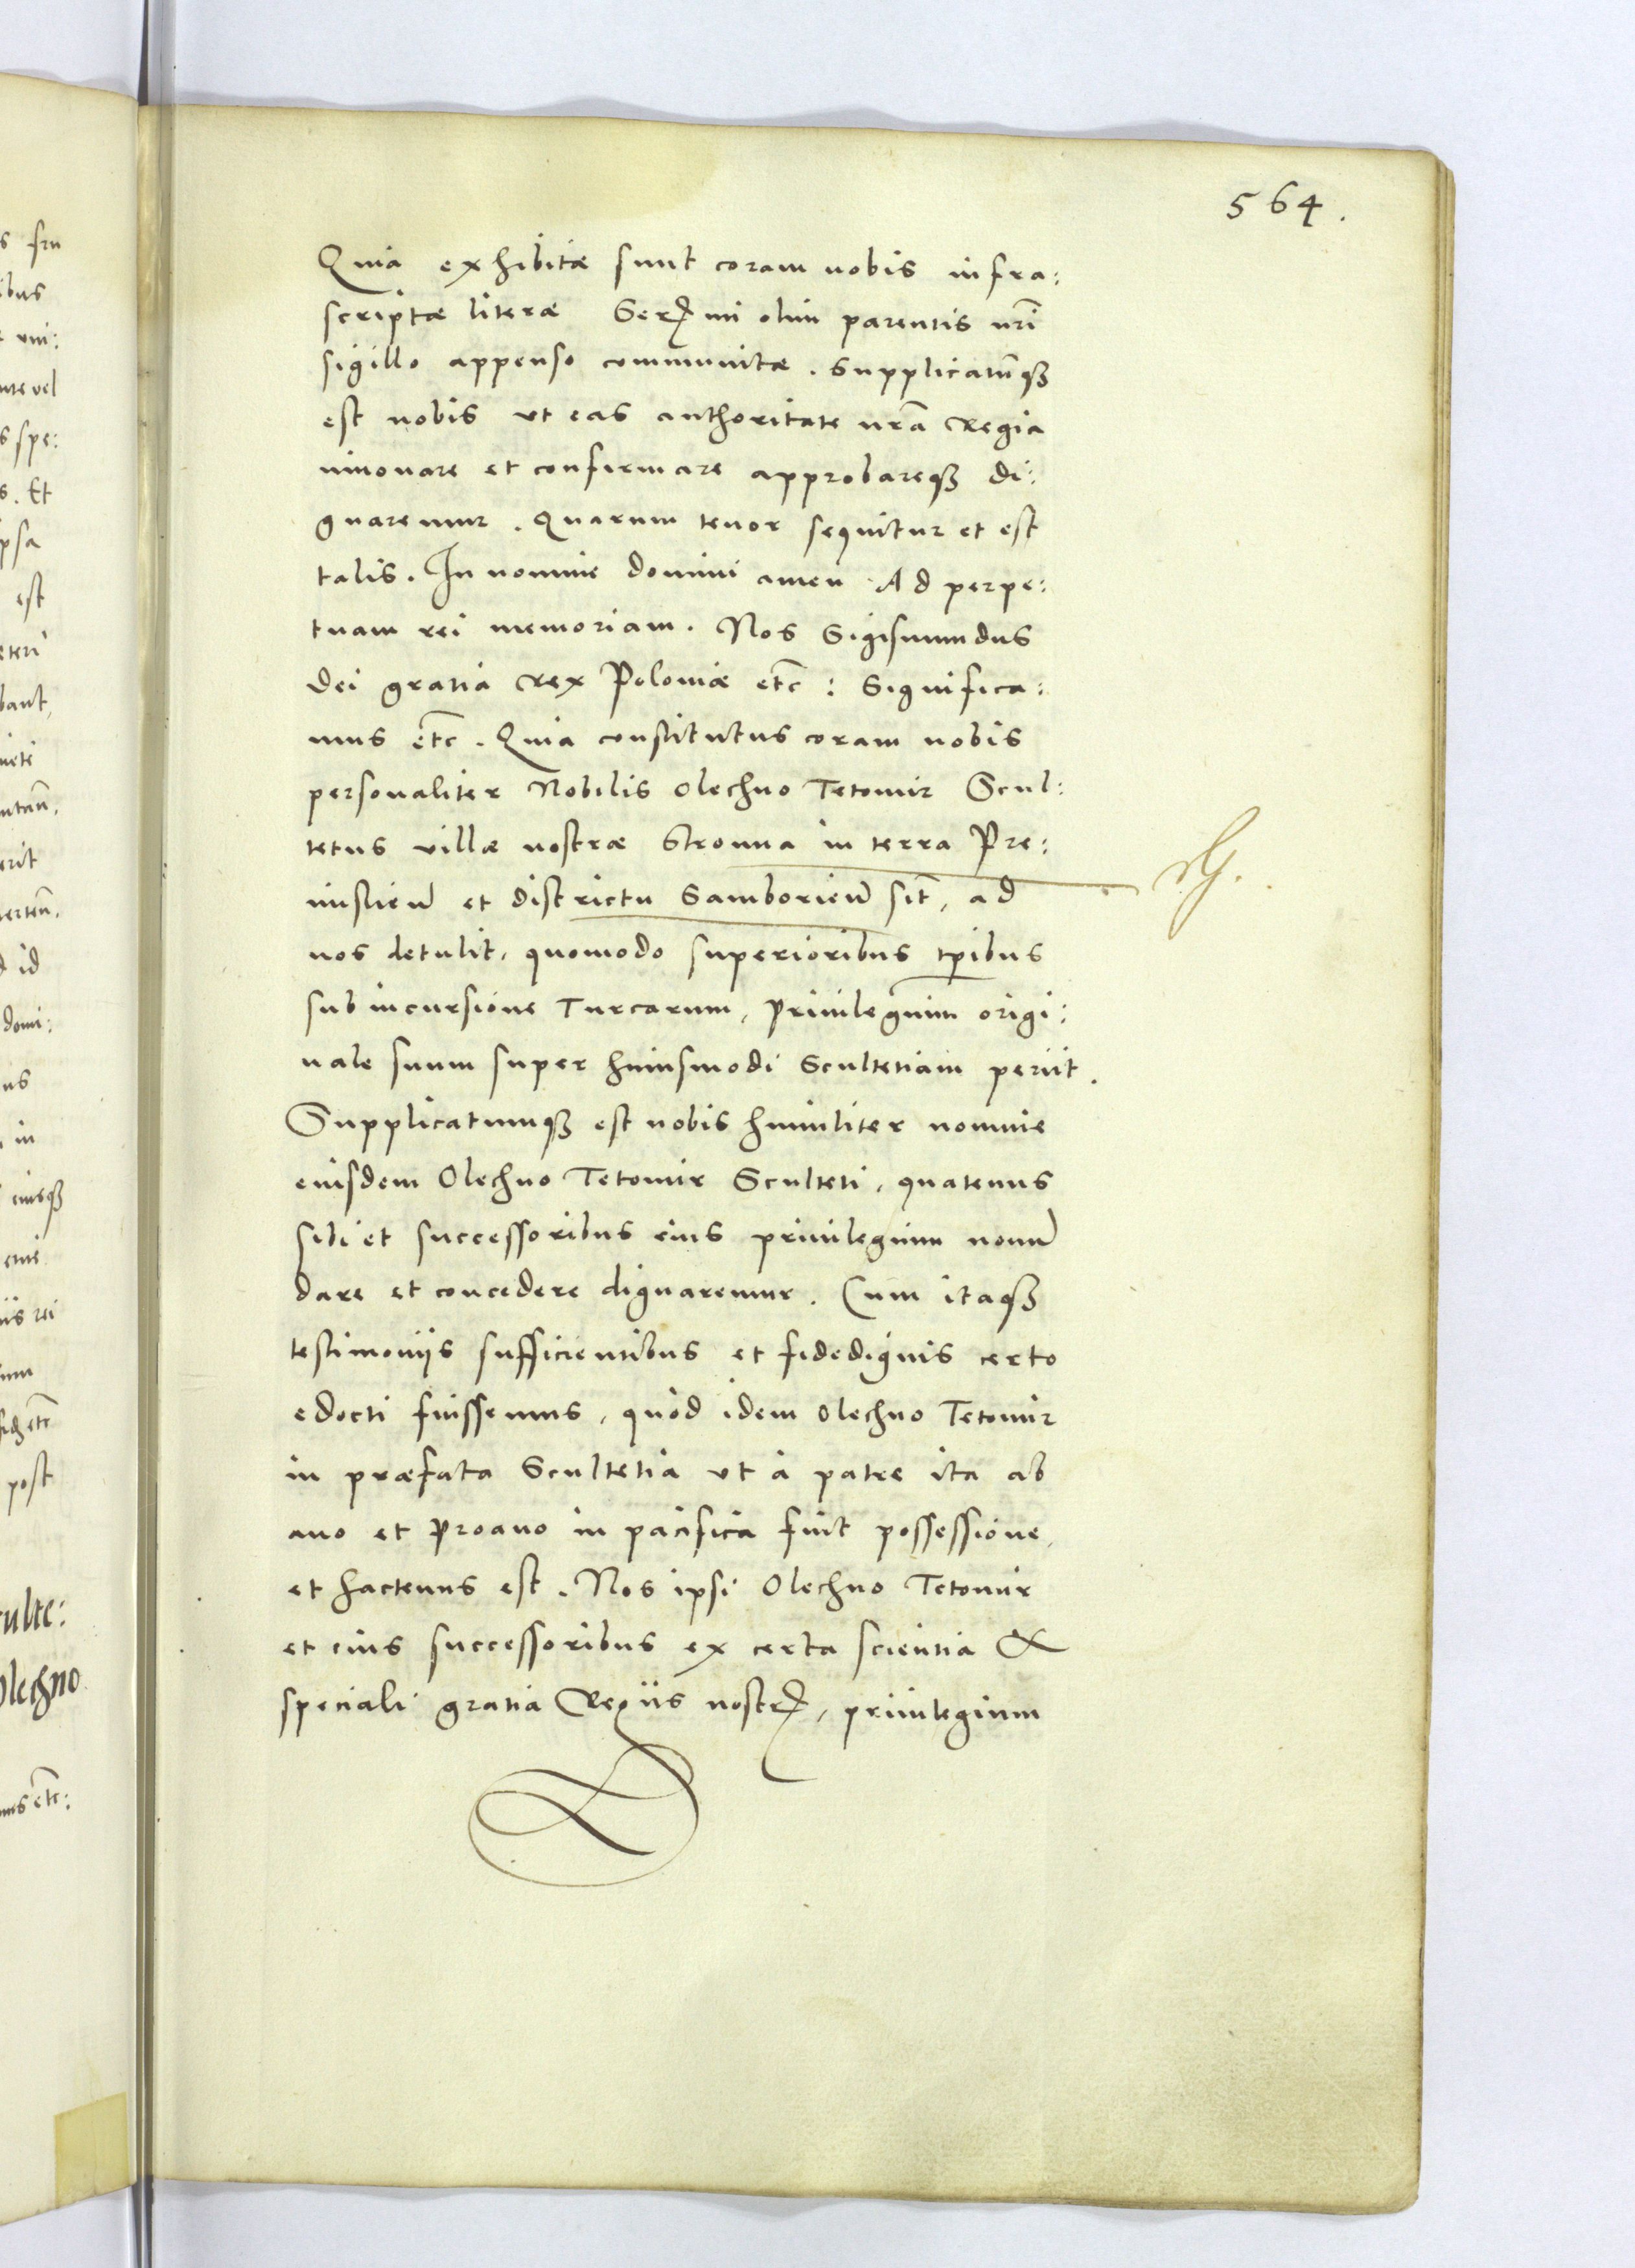 564.
Quia exhibitæ sunt coram nobis infra:
scriptæ literæ Sermi olim parentis nrĩ
sigillo appenso communitæ. Supplicatũqȝ
est nobis vt eas authoritate nrã Regia
innouare et confirmare approbareqȝ di:
gnaremur. Quarum tenor sequitur et est
talis. In nomine domini amen. Ad perpe:
tuam rei memoriam. Nos Sigismundus
Dei gratia Rex Poloniæ etc: Significa:
mus etc. Quia constitutus coram nobis
personaliter Nobilis Olechno Tetomir Scul:
tetus villæ nostræ Stronna in terra Pre:
mislien et districtu Samborien sit, ad
nos detulit, quomodo superioribus tpibus
sub incursione Turcarum, priuilegium origi:
nale suum super huiusmodi Scultetiam periit.
Supplicatumqȝ est nobis humiliter nomine
eiusdem Olechno Tetomir Sculteti, quatenus
sibi et successoribus eius priuilegium nouũ
dare et concedere dignaremur. Cum itaqȝ
testimoniis sufficientibus et fidedignis certo
edocti fuissemus, quòd idem Olechno Tetomir
in præfata Scultetia vt à patre ita ab
auo et proauo in pacifica fuit possessione,
et hactenus est. Nos ipsi Olechno Tetomir
et eius successoribus ex certa scientia &
speciali gratia Regiis nostr, priuilegium